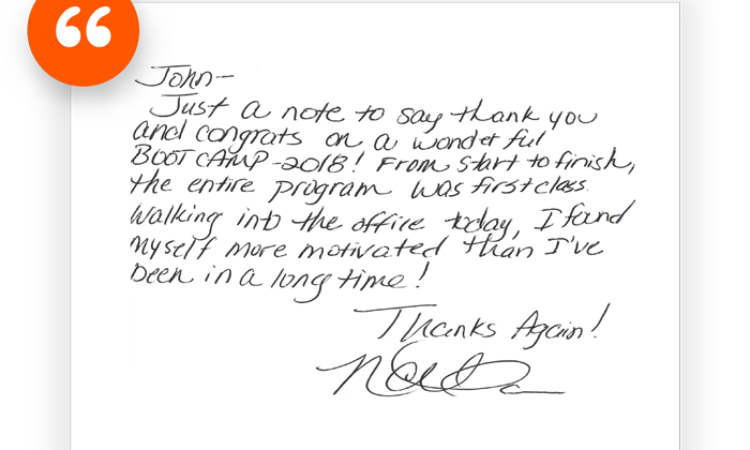 “
John-
Just a note to say thank you
and congrats on a wonderful
BOOT CAMP-2018! From start to finish,
the entire program was first class.
Walking into the office today, I found
myself more motivated than I've
been in a long time!
Thanks Again!